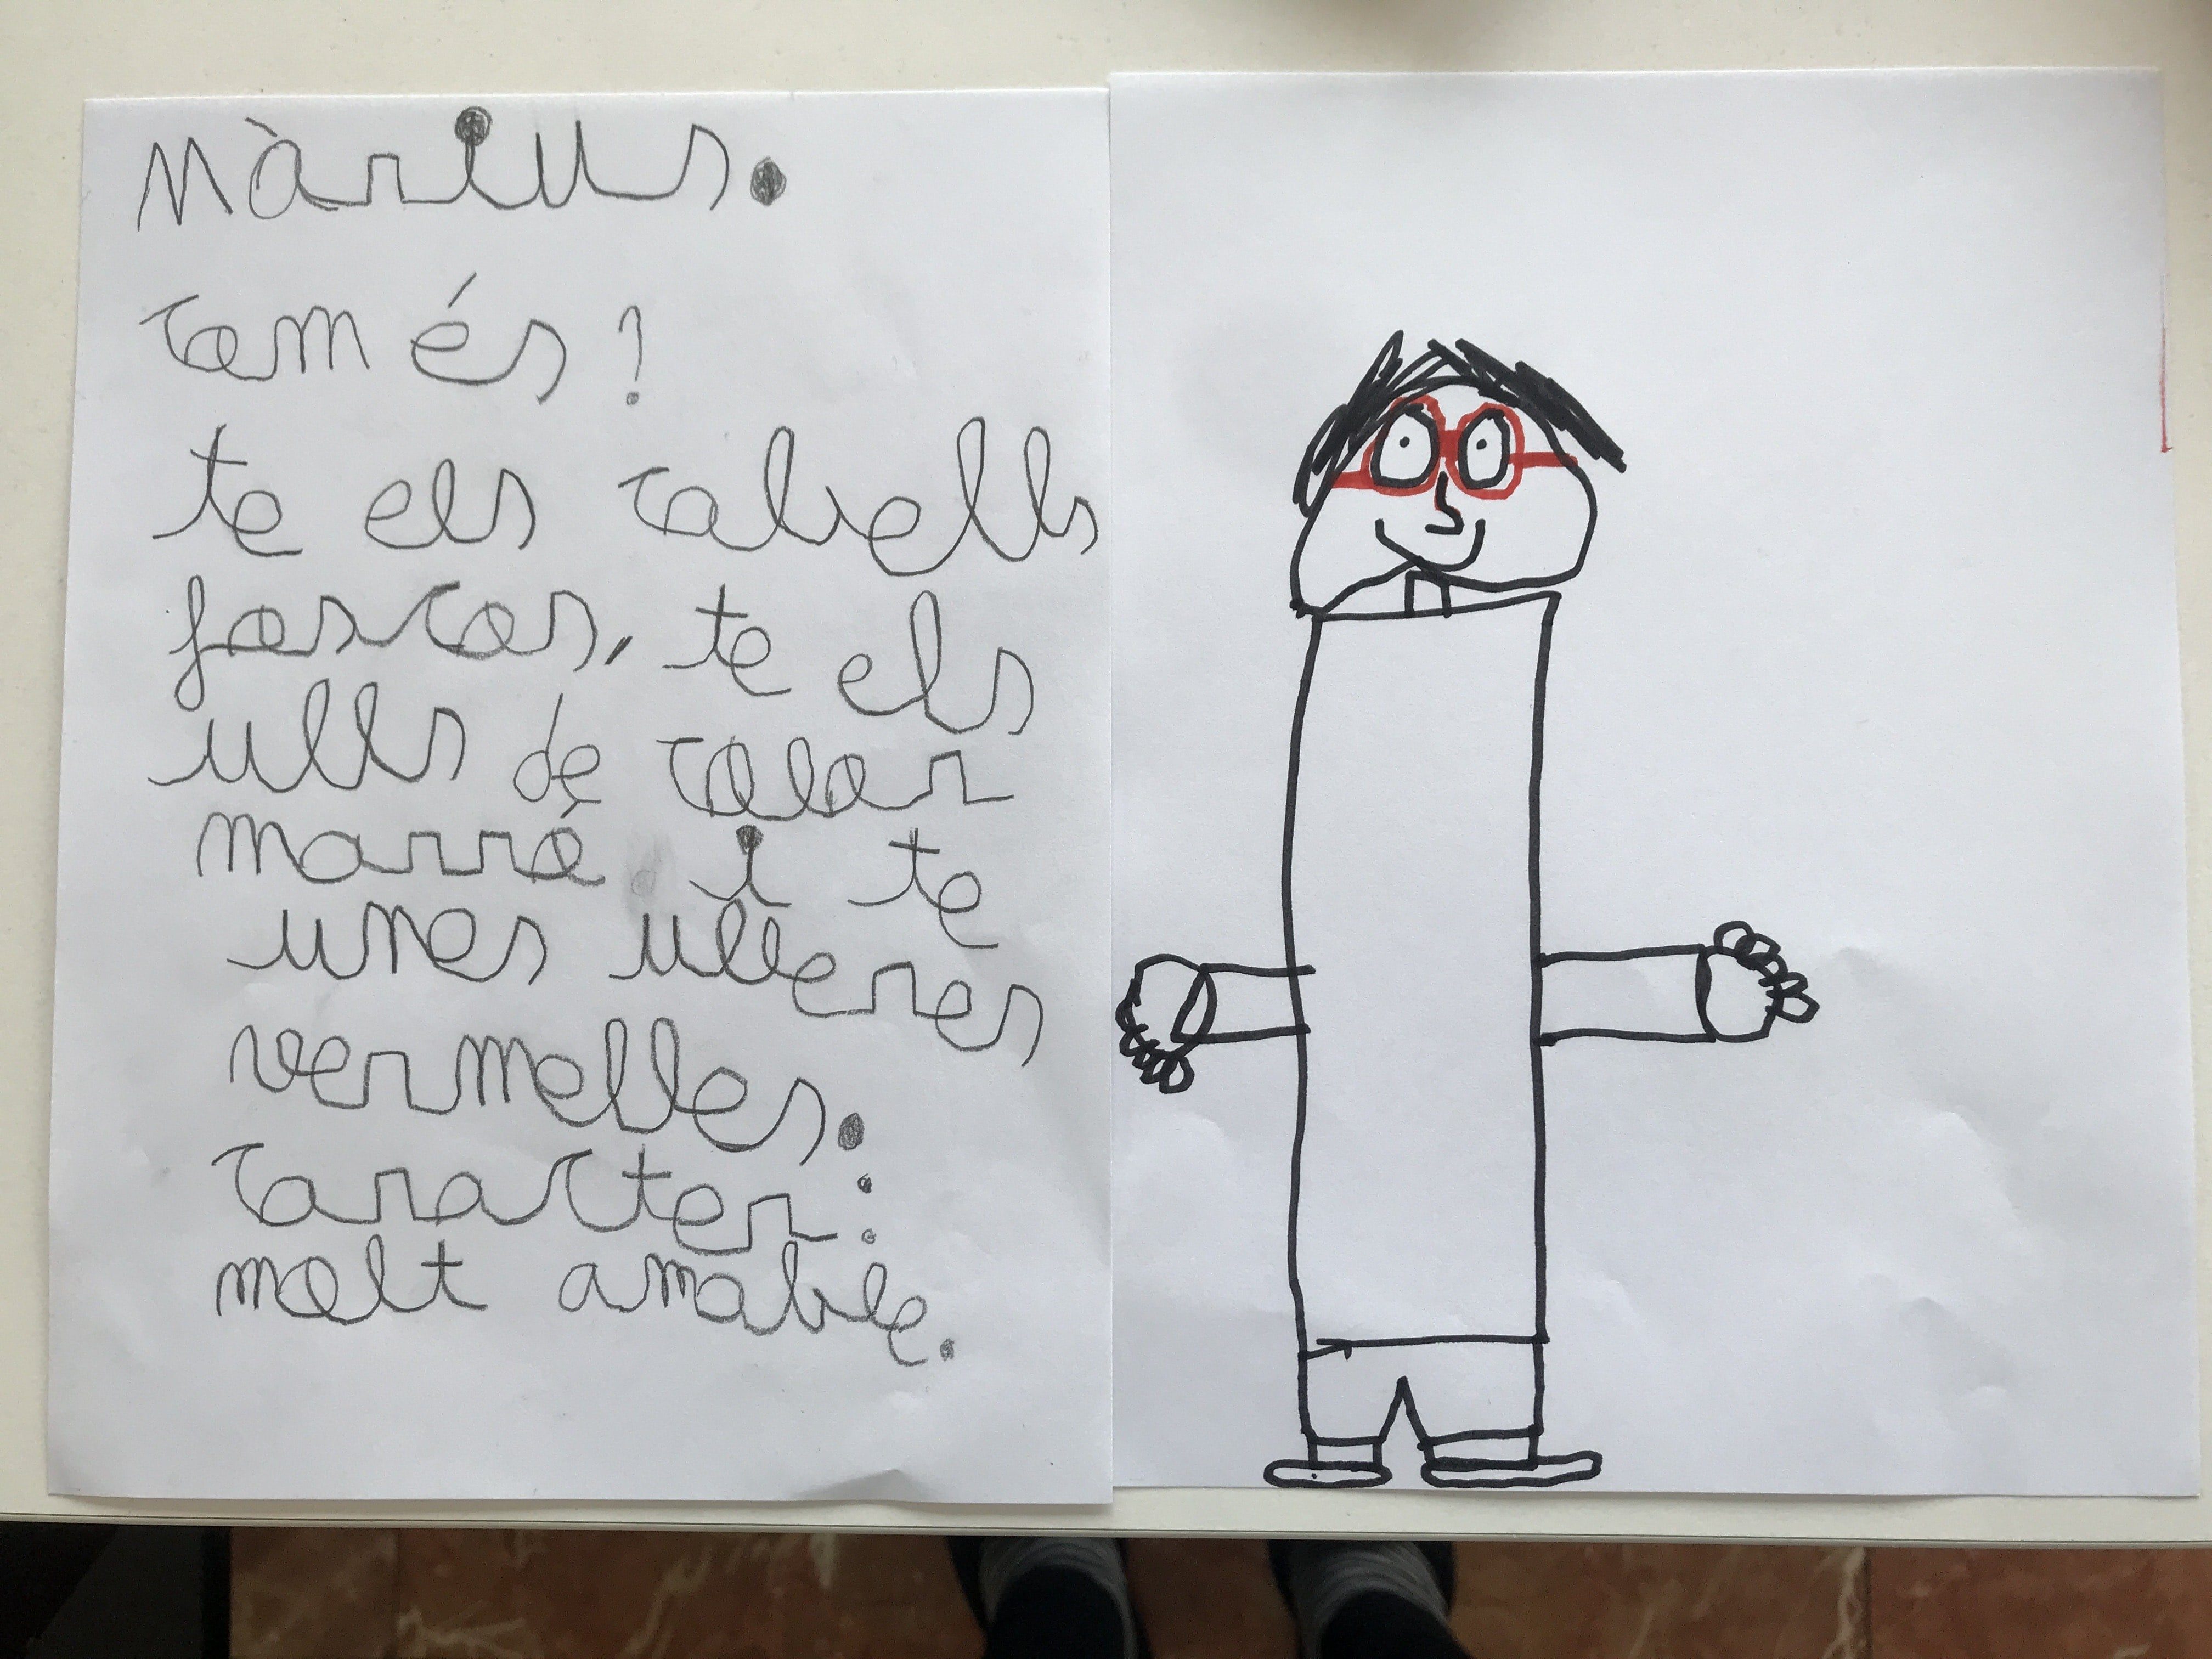 Màrius.
com és?
te els cabells
foscos, te els
ulls de color
marró i te
unes ulleres
vermelles.
caracter:
molt amable.